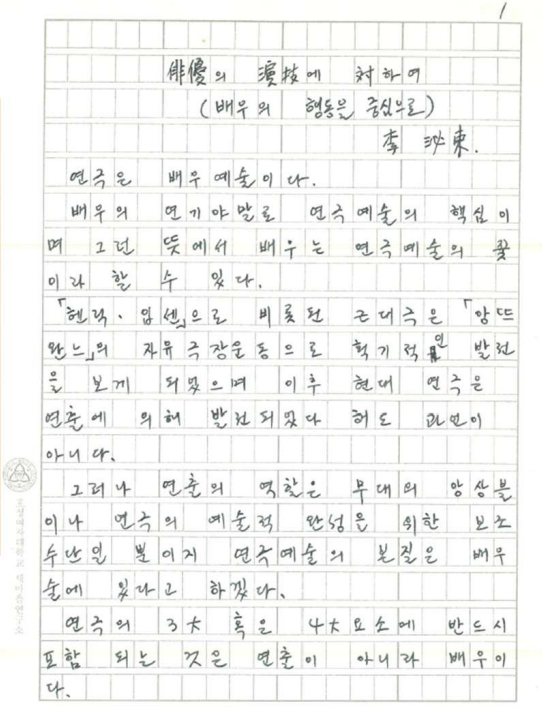 1
俳優의 演技에 対하여
(배우의 행동을 중심으로)
李 泌東.
연극은 배우 예술이다.
배우의 연기야말로 연극예술의 핵심이
며 그런 뜻에서 배우는 연극예술의 꽃
이라 할 수 있다.
「헨릭·입센」으로 비롯된 근대극은 「앙뜨
완느」의 자유극장운동으로 획기적인 발전
을 보게 되었으며 이후 현대 연극은
연출에 의해 발전되었다 해도 과언이
아니다.
그러나 연출의 역할은 무대의 앙상블
이나 연극의 예술적 완성을 위한 보조
수단일 뿐이지 연극예술의 본질은 배우
술에 있다고 하겠다.
연극의 3大 혹은 4大요소에 반드시
포함 되는 것은 연출이 아니라 배우이
다.
여자대학교 새마을연구소